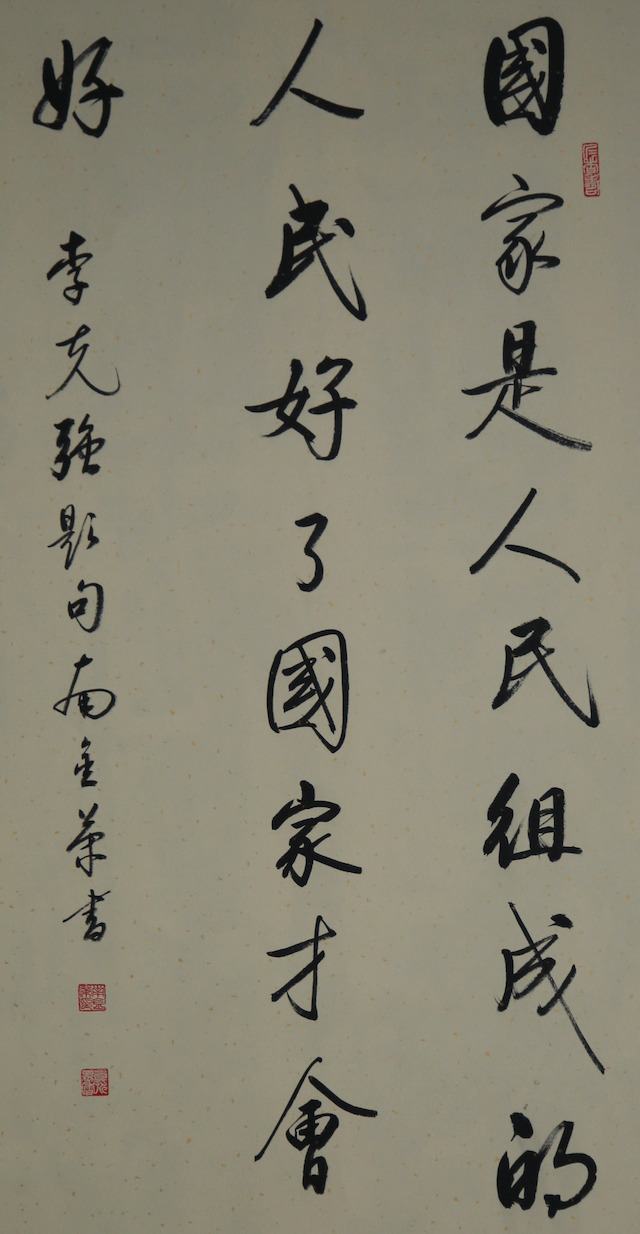 國家是人民組成的
人民好了國家才會
好
李克強題句南金菊書